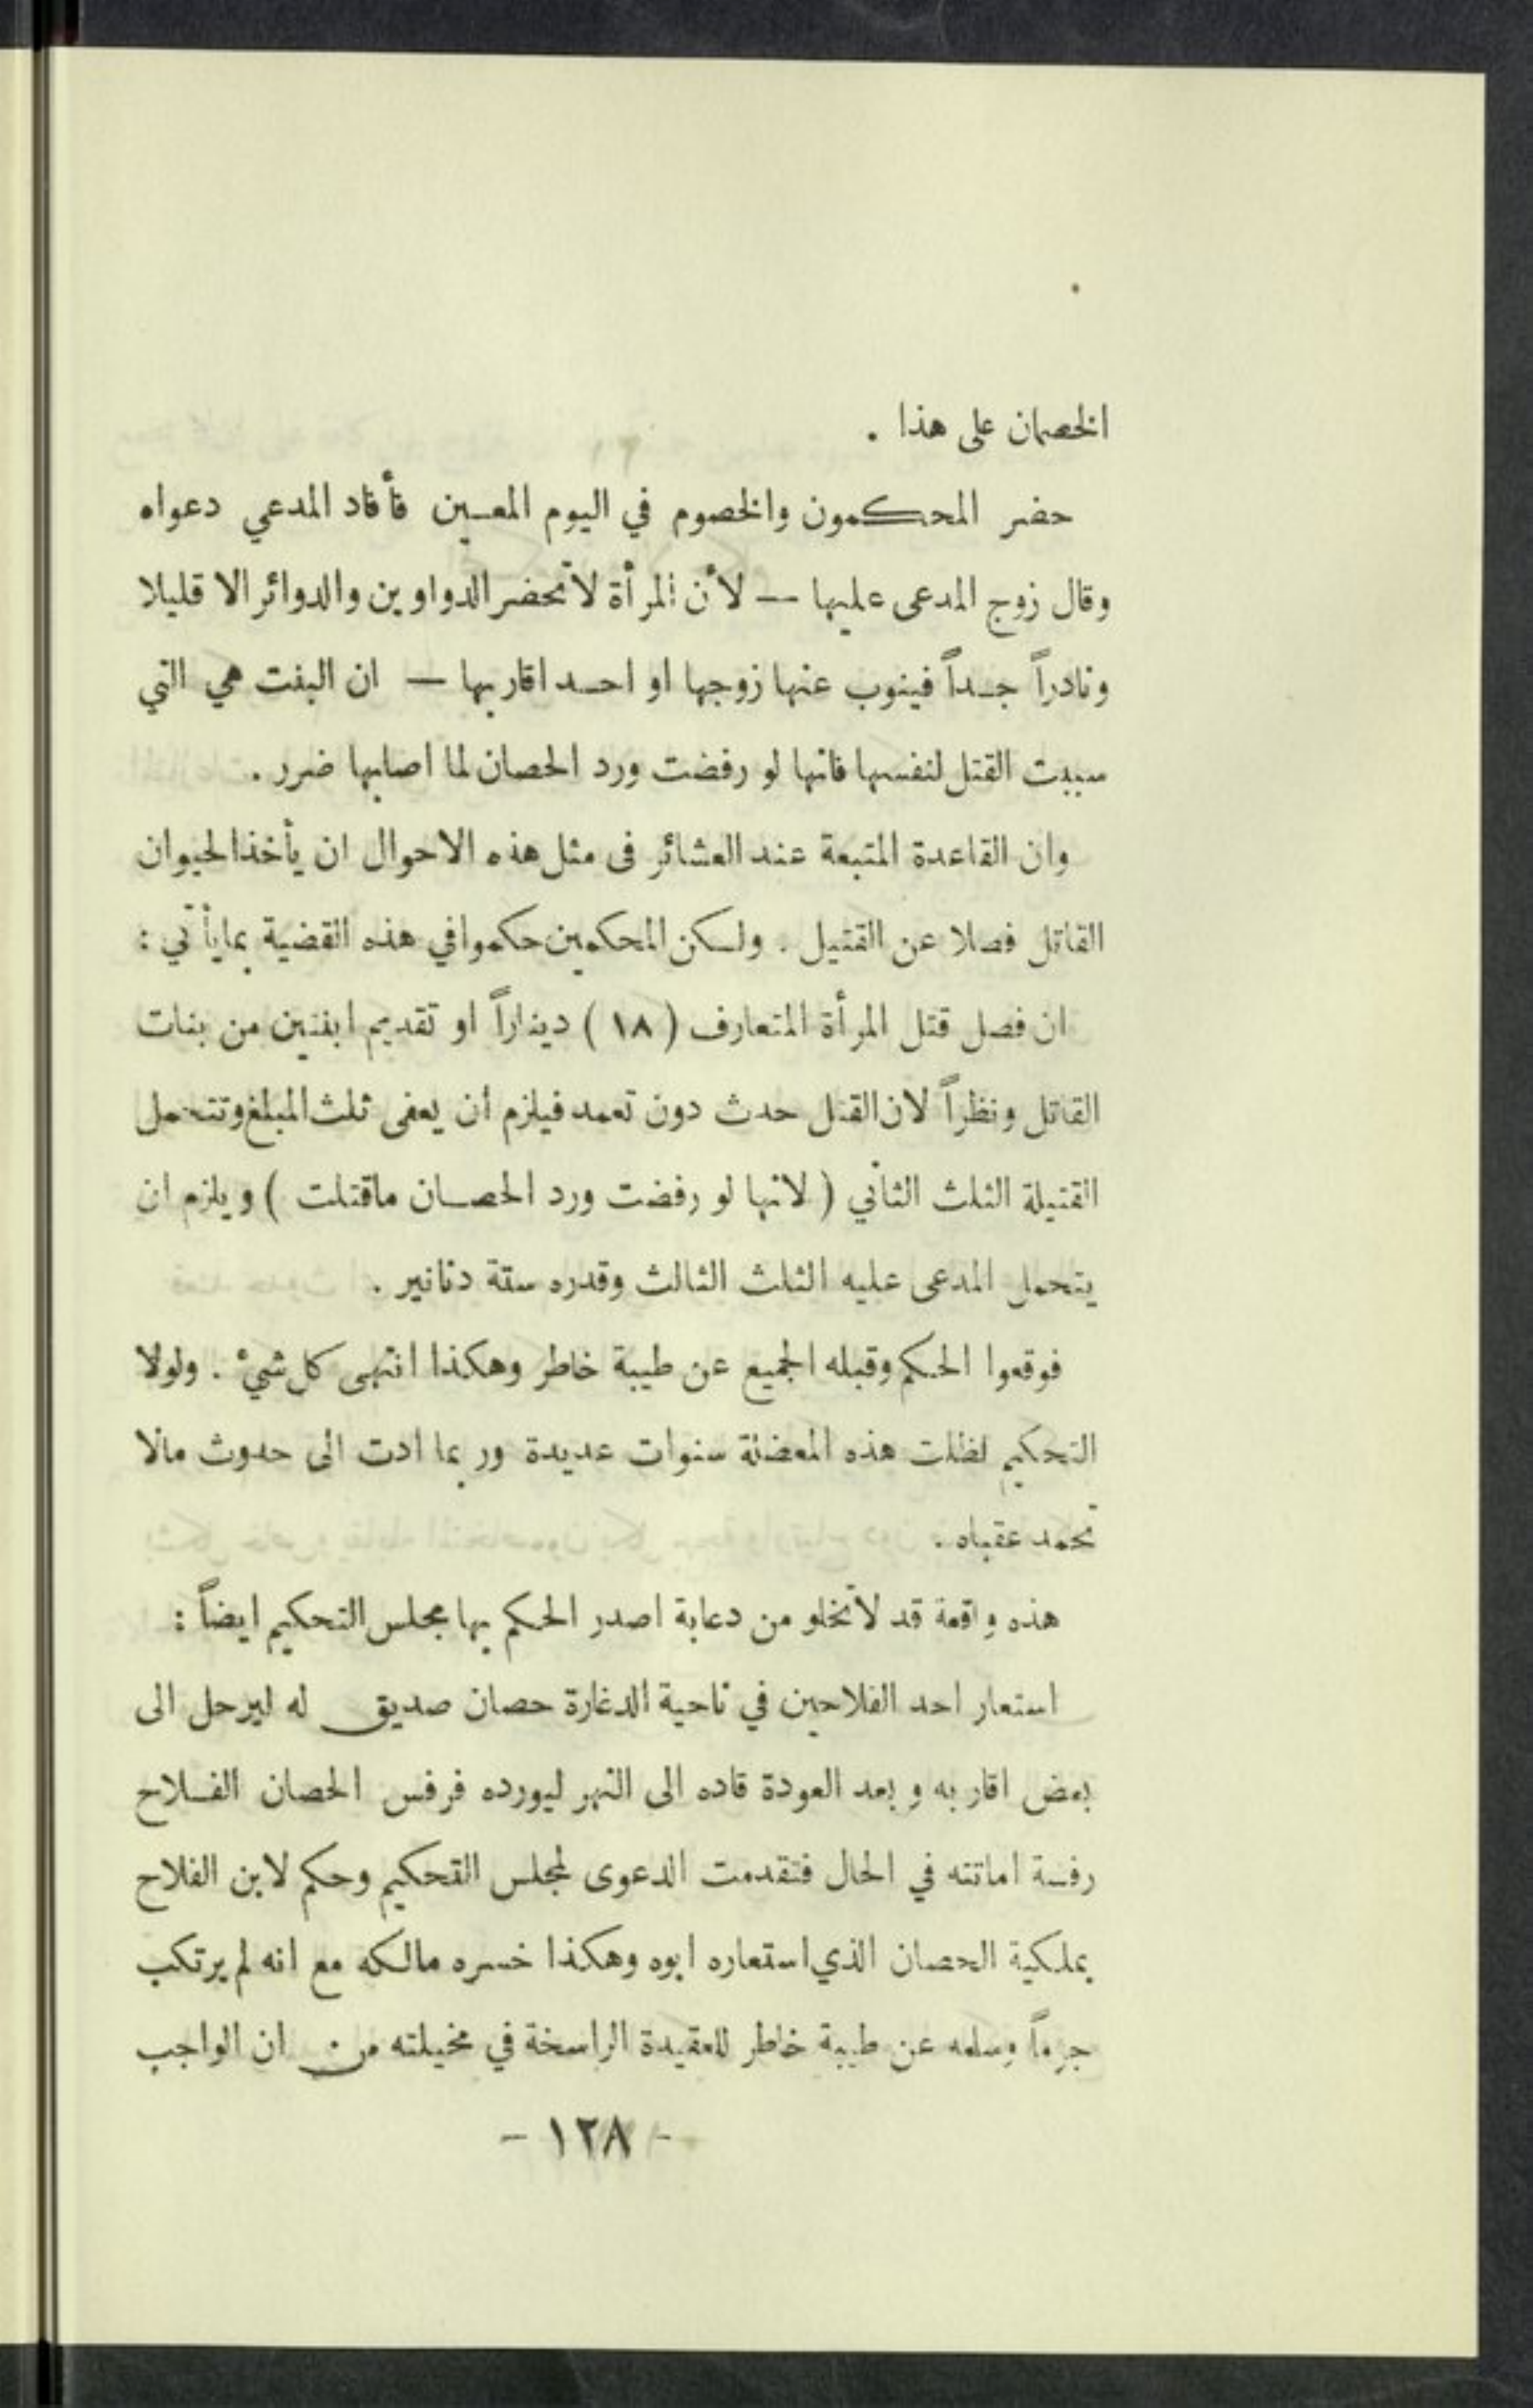 الخصمان على هذا .
حضر المحكمون والخصوم في اليوم المعين فأفاد المدعي دعواه
وقال زوج المدعى عليها — لأن المرأة لاتحضر الدواوين والدوائر الا قليلا
ونادراً جداً فينوب عنها زوجها او احد اقاربها — ان البنت هي التي
سببت القتل لنفسها فانها لو رفضت ورد الحصان لما اصابها ضرر .
وان القاعدة المتبعة عند العشائر فى مثل هذه الاحوال ان يأخذ الحيوان
القاتل فصلا عن القتيل . ولكن المحكمين حكموا في هذه القضية بمايأتي :
ان فصل قتل المرأة المتعارف ( ١٨ ) ديناراً او تقديم ابنتين من بنات
القاتل ونظراً لان القتل حدث دون تعمد فيلزم أن يعفى ثلث المبلغ وتتحمل
القتيلة الثلث الثاني ( لانها لو رفضت ورد الحصان ماقتلت ) ويلزم ان
يتحمل المدعى عليه الثلث الثالث وقدره ستة دنانير .
فوقعوا الحكم وقبله الجميع عن طيبة خاطر وهكذا انتهى كل شيء . ولولا
التحكيم لظلت هذه المعضلة سنوات عديدة وربما ادت الى حدوث مالا
تحمد عقباه .
هذه واقعة قد لاتخلو من دعابة اصدر الحكم بها مجلس التحكيم ايضاً :
استعار احد الفلاحين في ناحية الدغارة حصان صديق له ليرحل الى
بعض اقاربه وبعد العودة قاده الى النهر ليورده فرفس الحصان الفلاح
رفسة اماتته في الحال فتقدمت الدعوى لمجلس التحكيم وحكم لابن الفلاح
بملكية الحصان الذي استعاره ابوه وهكذا خسره مالكه مع انه لم يرتكب
جرماً وسلمه عن طيبة خاطر للعقيدة الراسخة في مخيلته من ان الواجب
- ١٢٨ -